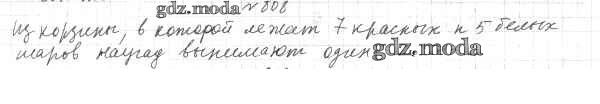 gdz.moda № 808
Из корзины, в которой лежат 7 красных и 5 белых
шаров наугад вынимают один gdz.moda